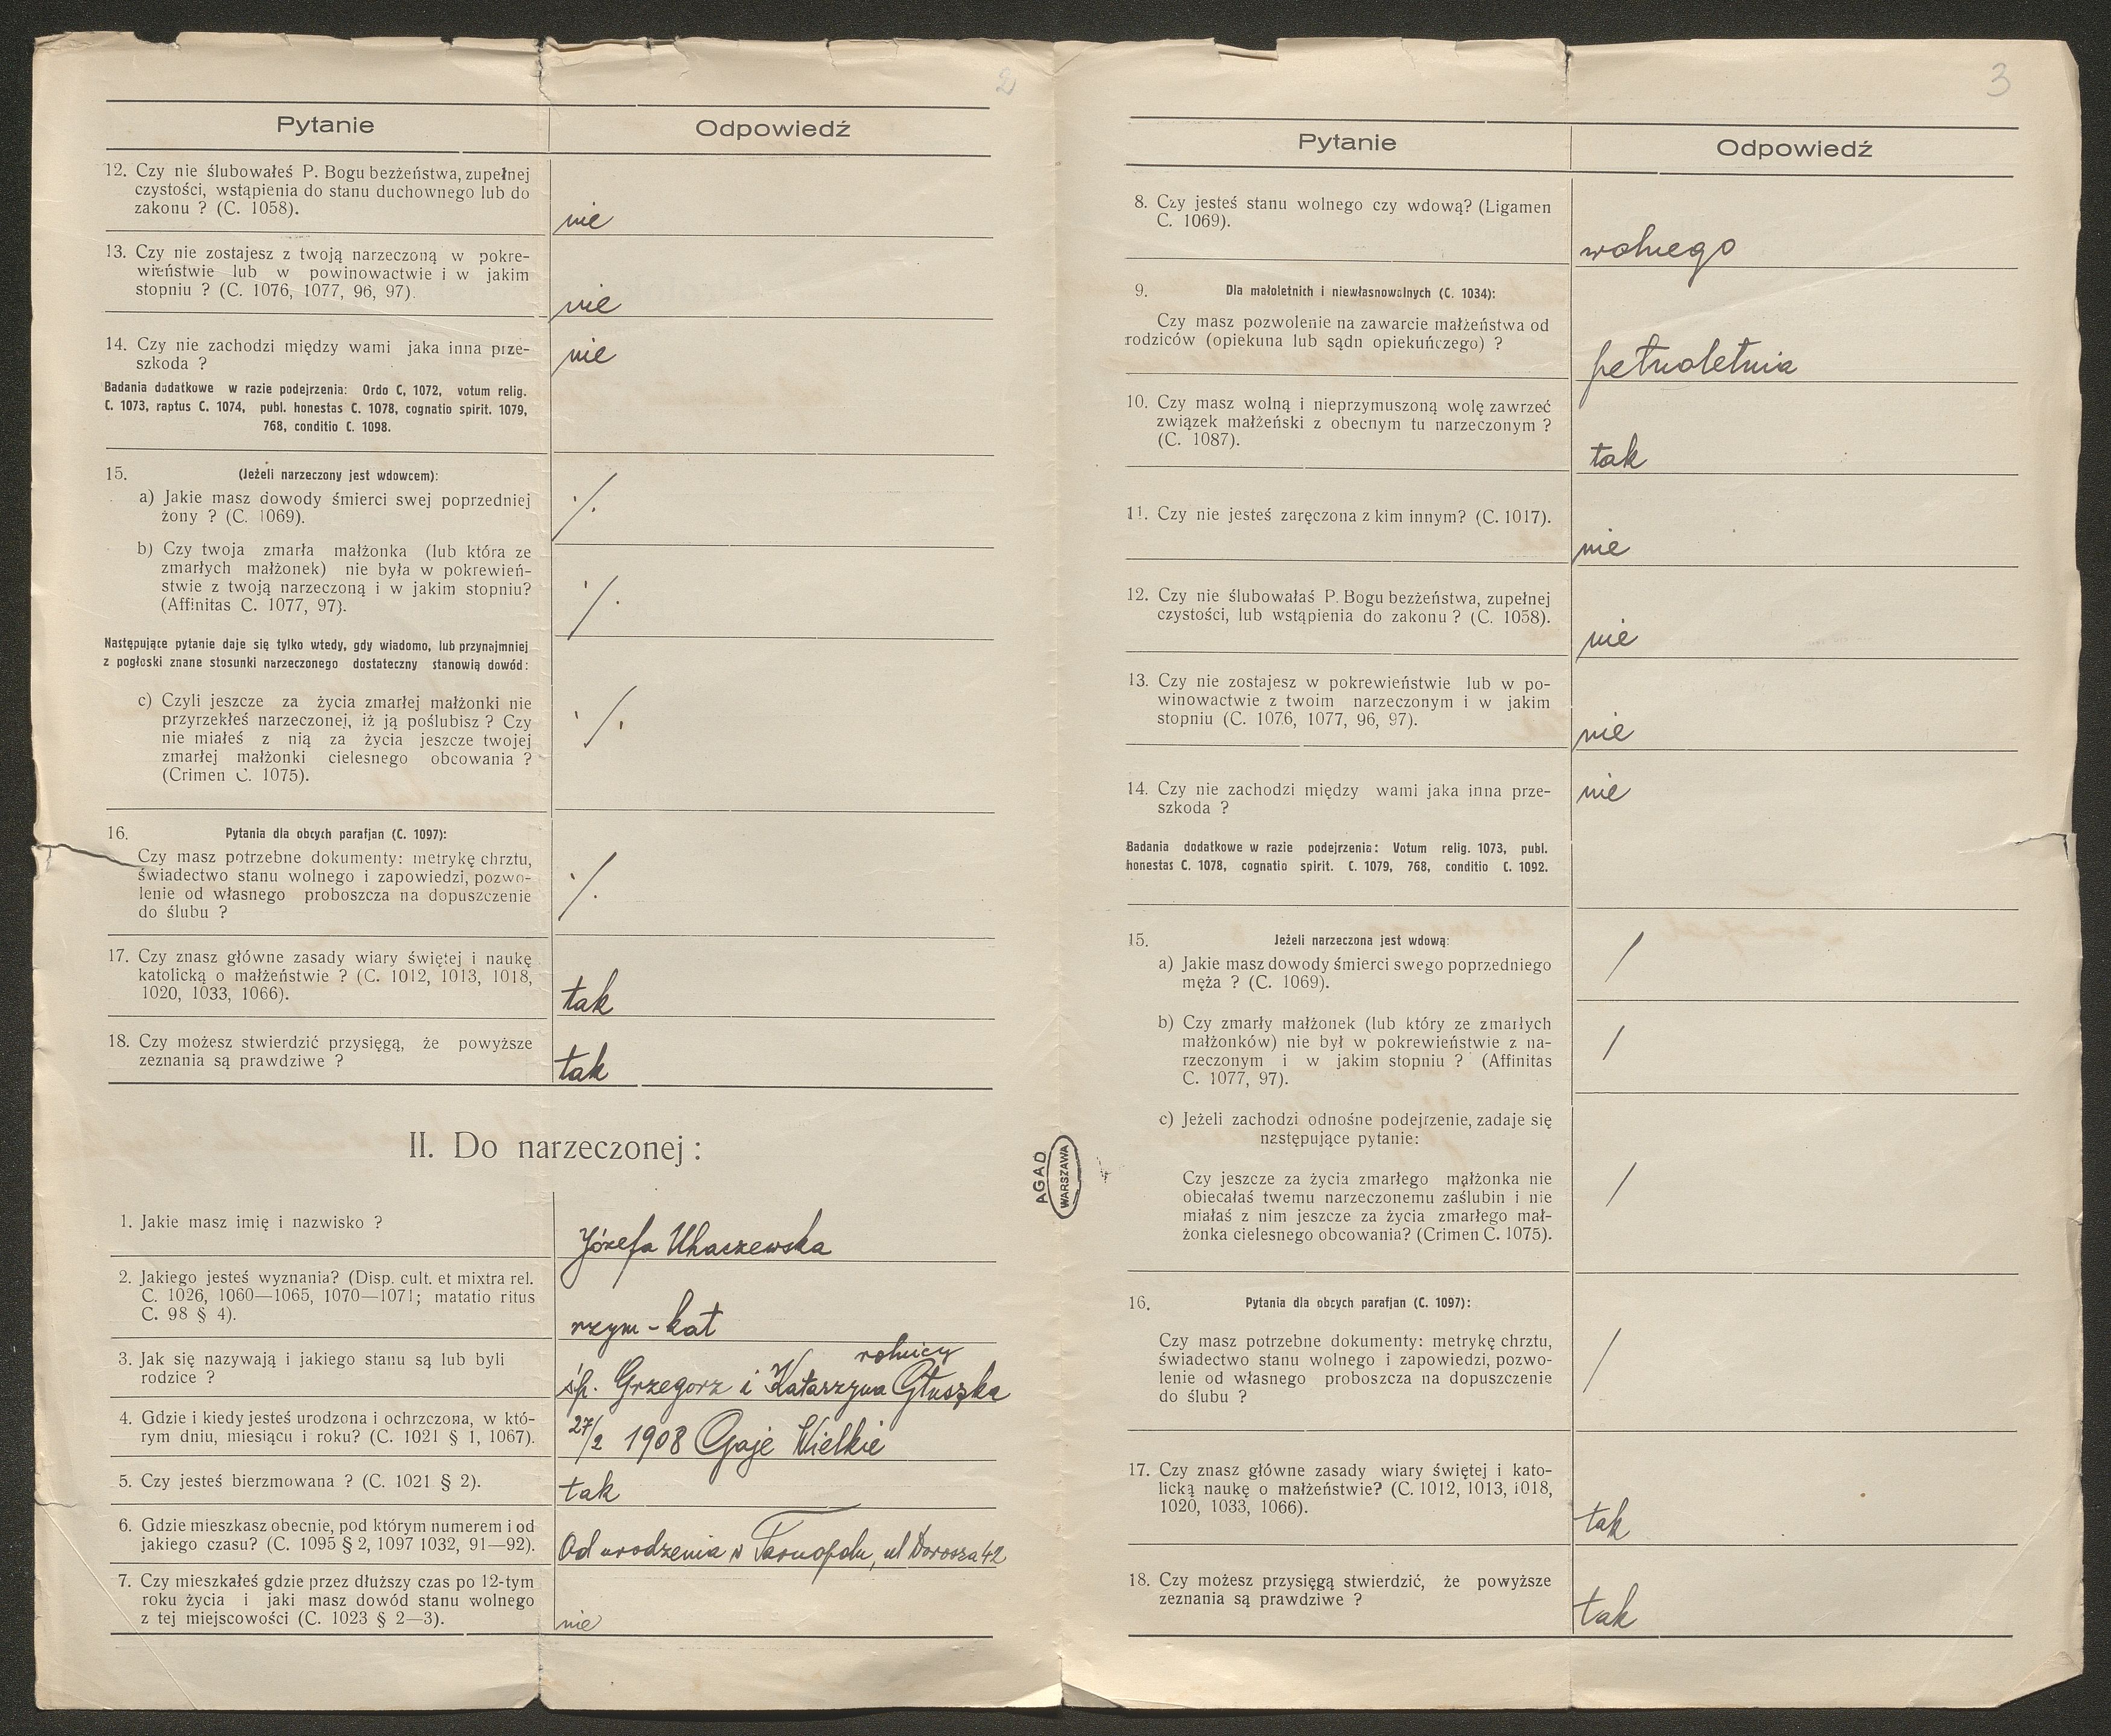 2
Pytanie
Odpowiedź
12. Czy nie ślubowałeś P. Bogu bezżeństwa, zupełnej
czystości, wstąpienia do stanu duchownego lub do
zakonu ? (C. 1058).
nie
13. Czy nie zostajesz z twoją narzeczoną w pokre-
wieństwie lub w powinowactwie i w jakim
stopniu ? (C. 1076, 1077, 96, 97).
nie
14. Czy nie zachodzi między wami jaka inna prze-
szkoda ?
nie
Badania dodatkowe w razie podejrzenia: Ordo C, 1072, votum relig.
C. 1073, raptus C. 1074, publ. honestas C. 1078, cognatio spirit. 1079,
768, conditio C. 1098.
15. (Jeżeli narzeczony jest wdowcem):
a) Jakie masz dowody śmierci swej poprzedniej
żony ? (C. 1069).
./.
b) Czy twoja zmarła małżonka (lub która ze
zmarłych małżonek) nie była w pokrewień-
stwie z twoją narzeczoną i w jakim stopniu?
(Affinitas C. 1077, 97).
./.
Następujące pytanie daje się tylko wtedy, gdy wiadomo, lub przynajmniej
z pogłoski znane stosunki narzeczonego dostateczny stanowią dowód:
c) Czyli jeszcze za życia zmarłej małżonki nie
przyrzekłeś narzeczonej, iż ją poślubisz ? Czy
nie miałeś z nią za życia jeszcze twojej
zmarłej małżonki cielesnego obcowania ?
(Crimen C. 1075).
./.
16. Pytania dla obcych parafjan (C. 1097):
Czy masz potrzebne dokumenty: metrykę chrztu,
świadectwo stanu wolnego i zapowiedzi, pozwo-
lenie od własnego proboszcza na dopuszczenie
do ślubu ?
./.
17. Czy znasz główne zasady wiary świętej i naukę
katolicką o małżeństwie ? (C. 1012, 1013, 1018,
1020, 1033, 1066).
tak
18. Czy możesz stwierdzić przysięgą, że powyższe
zeznania są prawdziwe ?
tak
II. Do narzeczonej :
1. Jakie masz imię i nazwisko ?
Józefa Uhaczewska
2. Jakiego jesteś wyznania? (Disp. cult. et mixtra rel.
C. 1026, 1060—1065, 1070—1071; matatio ritus
C. 98 § 4).
rzym-kat
3. Jak się nazywają i jakiego stanu są lub byli
rodzice ?
rolnicy
śp. Grzegorz i Katarzyna Głuszka
4. Gdzie i kiedy jesteś urodzona i ochrzczona, w któ-
rym dniu, miesiącu i roku? (C. 1021 § 1, 1067).
27/2 1908 Gaje Wielkie
5. Czy jesteś bierzmowana ? (C. 1021 § 2).
tak
6. Gdzie mieszkasz obecnie, pod którym numerem i od
jakiego czasu? (C. 1095 § 2, 1097 1032, 91—92).
Od urodzenia w Tarnopolu, ul Dorosza 42
7. Czy mieszkałeś gdzie przez dłuższy czas po 12-tym
roku życia i jaki masz dowód stanu wolnego
z tej miejscowości (C. 1023 § 2—3).
nie
AGAD
WARSZAWA
3
Pytanie
Odpowiedź
8. Czy jesteś stanu wolnego czy wdową? (Ligamen
C. 1069).
wolnego
9. Dla małoletnich i niewłasnowolnych (C. 1034):
Czy masz pozwolenie na zawarcie małżeństwa od
rodziców (opiekuna lub sądn opiekuńczego) ?
pełnoletnia
10. Czy masz wolną i nieprzymuszoną wolę zawrzeć
związek małżeński z obecnym tu narzeczonym ?
(C. 1087).
tak
11. Czy nie jesteś zaręczona z kim innym? (C. 1017).
nie
12. Czy nie ślubowałaś P. Bogu bezżeństwa, zupełnej
czystości, lub wstąpienia do zakonu ? (C. 1058).
nie
13. Czy nie zostajesz w pokrewieństwie lub w po-
winowactwie z twoim narzeczonym i w jakim
stopniu (C. 1076, 1077, 96, 97).
nie
14. Czy nie zachodzi między wami jaka inna prze-
szkoda ?
nie
Badania dodatkowe w razie podejrzenia: Votum relig. 1073, publ.
honestas C. 1078, cognatio spirit. C. 1079, 768, conditio C. 1092.
15. Jeżeli narzeczona jest wdową:
a) Jakie masz dowody śmierci swego poprzedniego
męża ? (C. 1069).
/
b) Czy zmarły małżonek (lub który ze zmarłych
małżonków) nie był w pokrewieństwie z na-
rzeczonym i w jakim stopniu ? (Affinitas
C. 1077, 97).
/
c) Jeżeli zachodzi odnośne podejrzenie, zadaje się
następujące pytanie:
Czy jeszcze za życia zmarłego małżonka nie
obiecałaś twemu narzeczonemu zaślubin i nie
miałaś z nim jeszcze za życia zmarłego mał-
żonka cielesnego obcowania? (Crimen C. 1075).
/
16. Pytania dla obcych parafjan (C. 1097):
Czy masz potrzebne dokumenty: metrykę chrztu,
świadectwo stanu wolnego i zapowiedzi, pozwo-
lenie od własnego proboszcza na dopuszczenie
do ślubu ?
/
17. Czy znasz główne zasady wiary świętej i kato-
licką naukę o małżeństwie? (C. 1012, 1013, 1018,
1020, 1033, 1066).
tak
18. Czy możesz przysięgą stwierdzić, że powyższe
zeznania są prawdziwe ?
tak